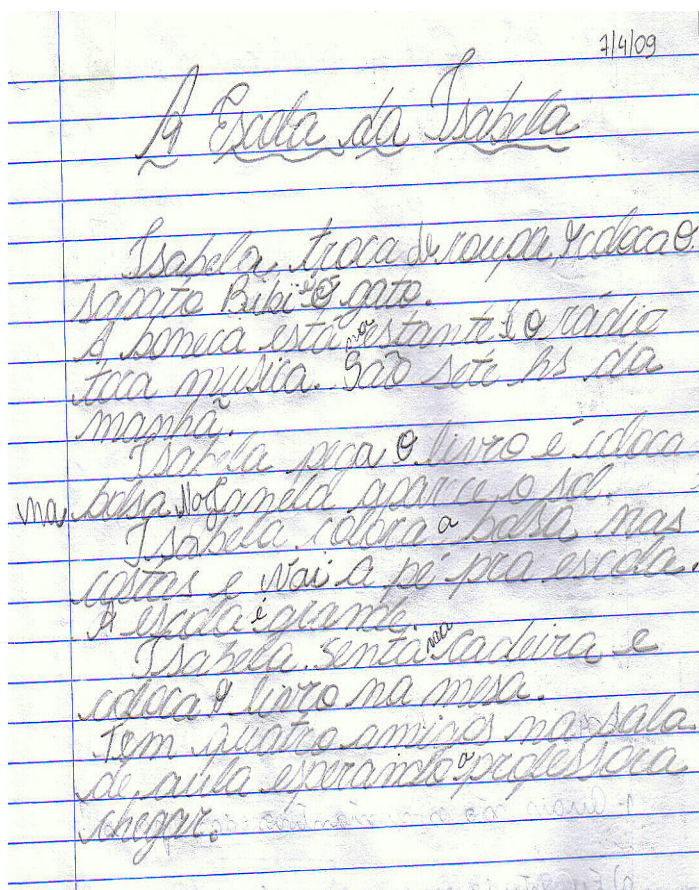 7/4/09
A Escola da Isabela
Isabela troca de roupa, e coloca o
sapato Bibi é o gato.
A boneca está na estante e o rádio
toca musica. São sete hs da
manhã.
Isabela pega o livro e coloca
na bolsa. Na Janela aparece o sol.
Isabela coloca a bolsa nas
costas e vai a pé pra escola.
A escola é grande.
Isabela senta na cadeira e
coloca o livro na mesa.
Tem quatro amigos na sala
de aula esperando a professora
chegar.